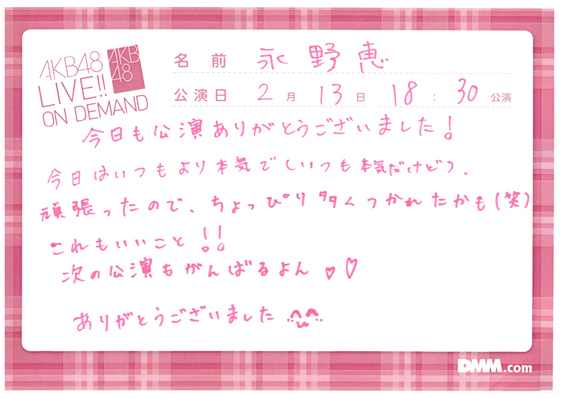 AKB48
LIVE!!
ON DEMAND
AKB
48
名前 永野恵
公演日 2月13日 18:30公演
今日も公演ありがとうございました!
今日はいつもより本気でしいつも本気だけどつ、
頑張ったので、ちょっぴり多くつかれたかも(笑)
これもいいこと!!
次の公演もがんばるよん♡♡
ありがとうございました
DMM.com